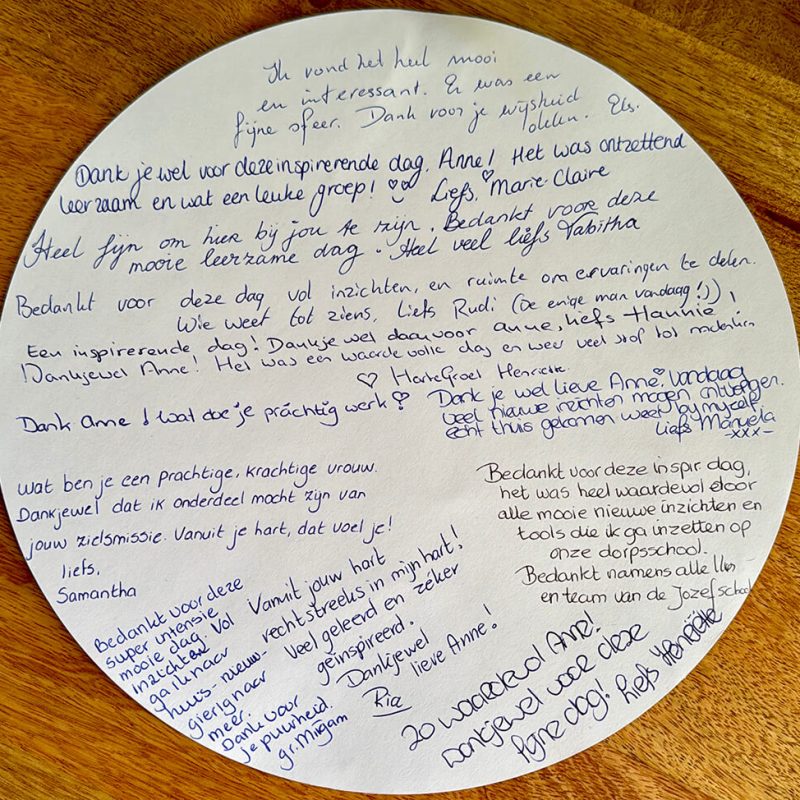 Ik vond het heel mooi
en interessant. Er was een
fijne sfeer. Dank voor je wijsheid
delen. Els.
Dank je wel voor deze inspirerende dag, Anne! Het was ontzettend
leerzaam en wat een leuke groep! Liefs, Marie Claire
Heel fijn om hier bij jou te zijn. Bedankt voor deze
mooie leerzame dag. Heel veel liefs Tabitha
Bedankt voor deze dag vol inzichten, en ruimte om ervaringen te delen.
Wie weet tot ziens, Liefs Rudi (De enige man vandaag!;))
Een inspirerende dag! Dankjewel daarvoor anne, liefs Hannie!
!Dankjewel Anne! Het was een waardevolle dag en weer veel stof tot nadenken
♡ HarteGroet Henriette.
Dank Anne! wat doe je prachtig werk!
Dank je wel lieve Anne. Vandaag
veel nieuwe inzichten mogen ontvangen.
echt thuis gekomen weer by myself
Liefs Manuela
-xxx-
wat ben je een prachtige, krachtige vrouw.
Dankjewel dat ik onderdeel mocht zijn van
jouw zielsmissie. Vanuit je hart, dat voel je!
liefs,
Samantha
Bedankt voor deze inspir dag,
het was heel waardevol door
alle mooie nieuwe inzichten en
tools die ik ga inzetten op
onze dorpsschool.
Bedankt namens alle lln
en team van de Jozefschool
Bedankt voor deze
super intensie
mooie dag. Vol
inzichten
ga ik naar
huis - nieuw-
gierig naar
meer.
Dank voor
je puurheid.
gr. Mirjam
Vanuit jouw hart
rechtstreeks in mijn hart!
Veel geleerd en zéker
geïnspireerd.
Dankjewel
lieve Anne!
Ria
Zo waardevol Anne!
Dankjewel voor deze
fijne dag! liefs Henriëtte